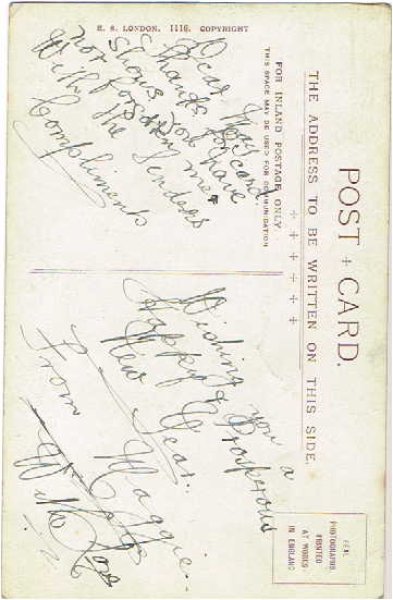 POST CARD.
THE ADDRESS TO BE WRITTEN ON THIS SIDE.
FOR INLAND POSTAGE ONLY
THIS SPACE MAY BE USED FOR COMMUNICATION
E. S. LONDON, 1116, COPYRIGHT
REAL
PHOTOGRAPHS
PRINTED
AT WORKS
IN ENGLAND
Dear May
Thanks for card.
Shows you have
not forgotten me.
With the Senders
Compliments
Wishing you a
Happy & Prosperous
New Year.
From Maggie.
With Love